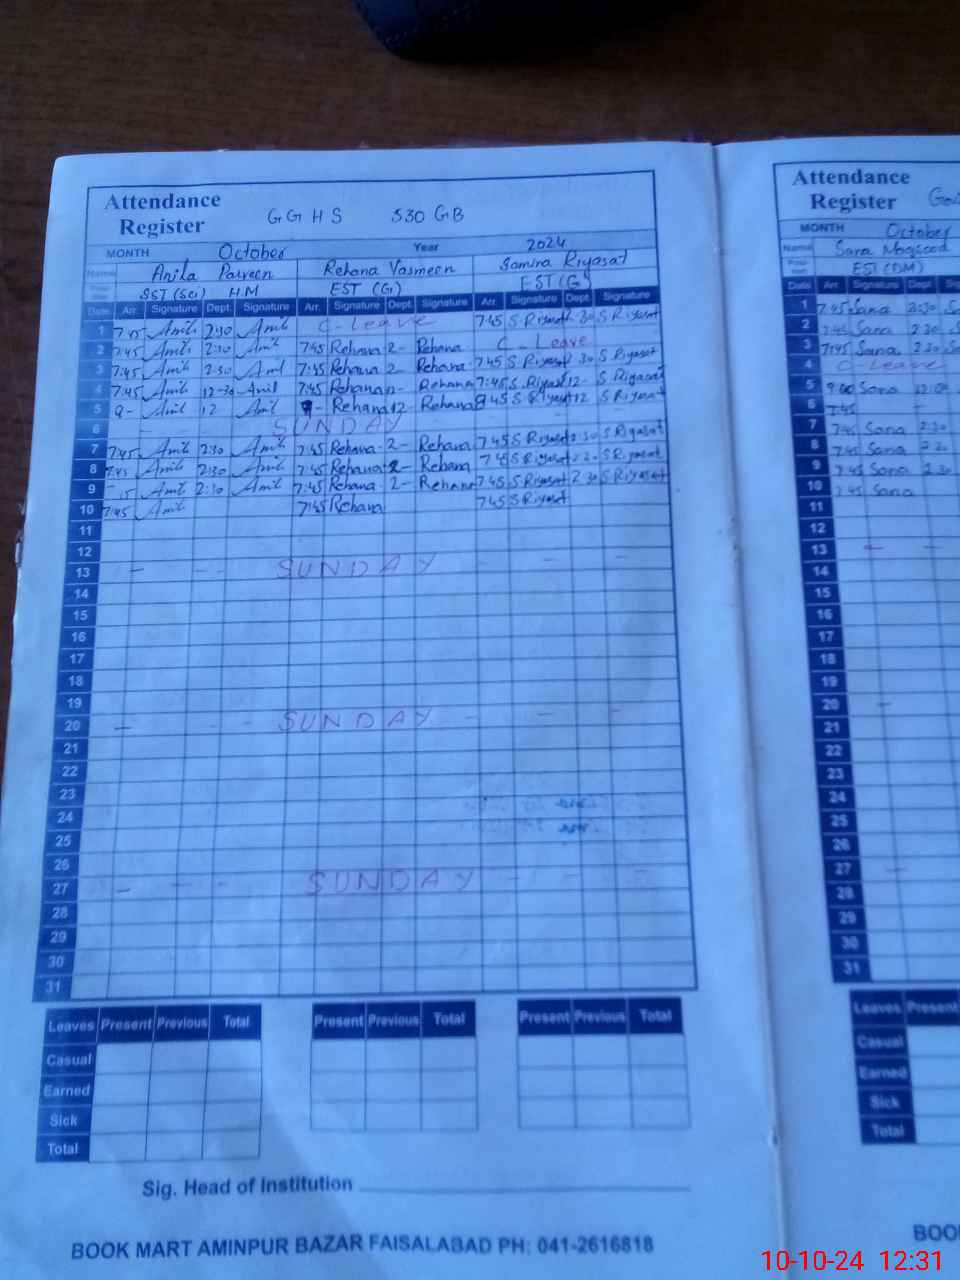 Attendance
Register GGHS 530 GB
MONTH October Year 2024
Name Anila Parveen Rehana Yasmeen Samira Riyasat
SST (Sci) HM EST (G) EST (G)
Date Arr. Signature Dept. Signature Arr. Signature Dept. Signature Arr. Signature Dept. Signature
1 7:45 Amil 2:30 Amil C-Leave 7:45 S Riyasat 2:30 S Riyasat
2 7:45 Amil 2:30 Amil 7:45 Rehana 2- Rehana C-Leave
3 7:45 Amil 2:30 Amil 7:45 Rehana 2 Rehana 7:45 S Riyasat 2:30 S Riyasat
4 7:45 Amil 12-30 Amil 7:45 Rehana Rehana 7:45 S Riyasat 12- S Riyasat
5 9- Amil 12 Amil 9- Rehana 12 Rehana 9:45 S Riyasat 12 S Riyasat
6 SUNDAY
7 7:45 Amil 2:30 Amil 7:45 Rehana 2- Rehana 7:45 S Riyasat 2:30 S Riyasat
8 7:45 Amil 2:30 Amil 7:45 Rehana 2- Rehana 7:45 S Riyasat S Riyasat
9 Amil 2:30 Amil 7:45 Rehana 2- Rehana 7:45 S Riyasat 2:30 S Riyasat
10 7:45 Amil 7:45 Rehana 7:45 S Riyasat
11
12
13 - - - SUNDAY - - -
14
15
16
17
18
19
20 - - - SUNDAY - - -
21
22
23
24
25
26
27 - - - SUNDAY - - -
28
29
30
31
Leaves Present Previous Total Present Previous Total Present Previous Total
Casual
Earned
Sick
Total
Sig. Head of Institution
BOOK MART AMINPUR BAZAR FAISALABAD PH: 041-2616818
Attendance
Register
MONTH October
Name Sana Maqsood
EST (DM)
Date Arr. Signature Dept.
1 7:45 Sana 2:30
2 7:45 Sana 2:30
3 7:45 Sana 2:30
4 C-Leave
5 9:00 Sana
6
7 7:45 Sana 2:30
8 7:45 Sana
9 7:45 Sana 2:30
10 7:45 Sana
11
12
13 - -
14
15
16
17
18
19
20 -
21
22
23
24
25
26
27 -
28
29
30
31
Leaves Present
Casual
Earned
Sick
Total
10-10-24 12:31